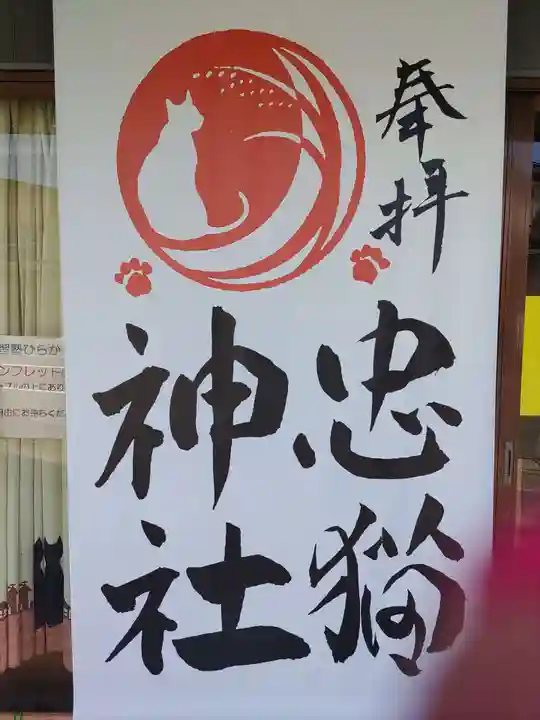 奉拝
忠猫
神社
塾ひらか
ンフレット
ブルの上にあり
由にお持ちくだ